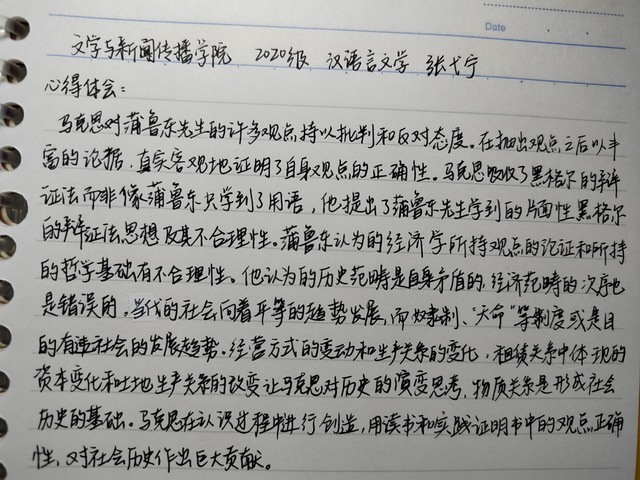 Date
文学与新闻传播学院 2020级 汉语言文学 张弋宁
心得体会：
马克思对蒲鲁东先生的许多观点持以批判和反对态度。在抛出观点之后以丰
富的论据，真实客观地证明了自身观点的正确性。马克思吸收了黑格尔的辩
证法而非像蒲鲁东只学到了用语，他提出了蒲鲁东先生学到的片面性黑格尔
的辩证法思想及其不合理性。蒲鲁东认为的经济学所持观点的论证和所持
的哲学基础有不合理性。他认为的历史范畴是自身矛盾的，经济范畴的次序也
是错误的，当代的社会向着平等的趋势发展，而奴隶制、“天命”等制度或是目
的有违社会的发展趋势。经营方式的变动和生产关系的变化，租赁关系中体现的
资本变化和土地生产关系的改变让马克思对历史的演变思考，物质关系是形成社会
历史的基础。马克思在认识过程中进行创造，用读书和实践证明书中的观点正确
性，对社会历史作出巨大贡献。